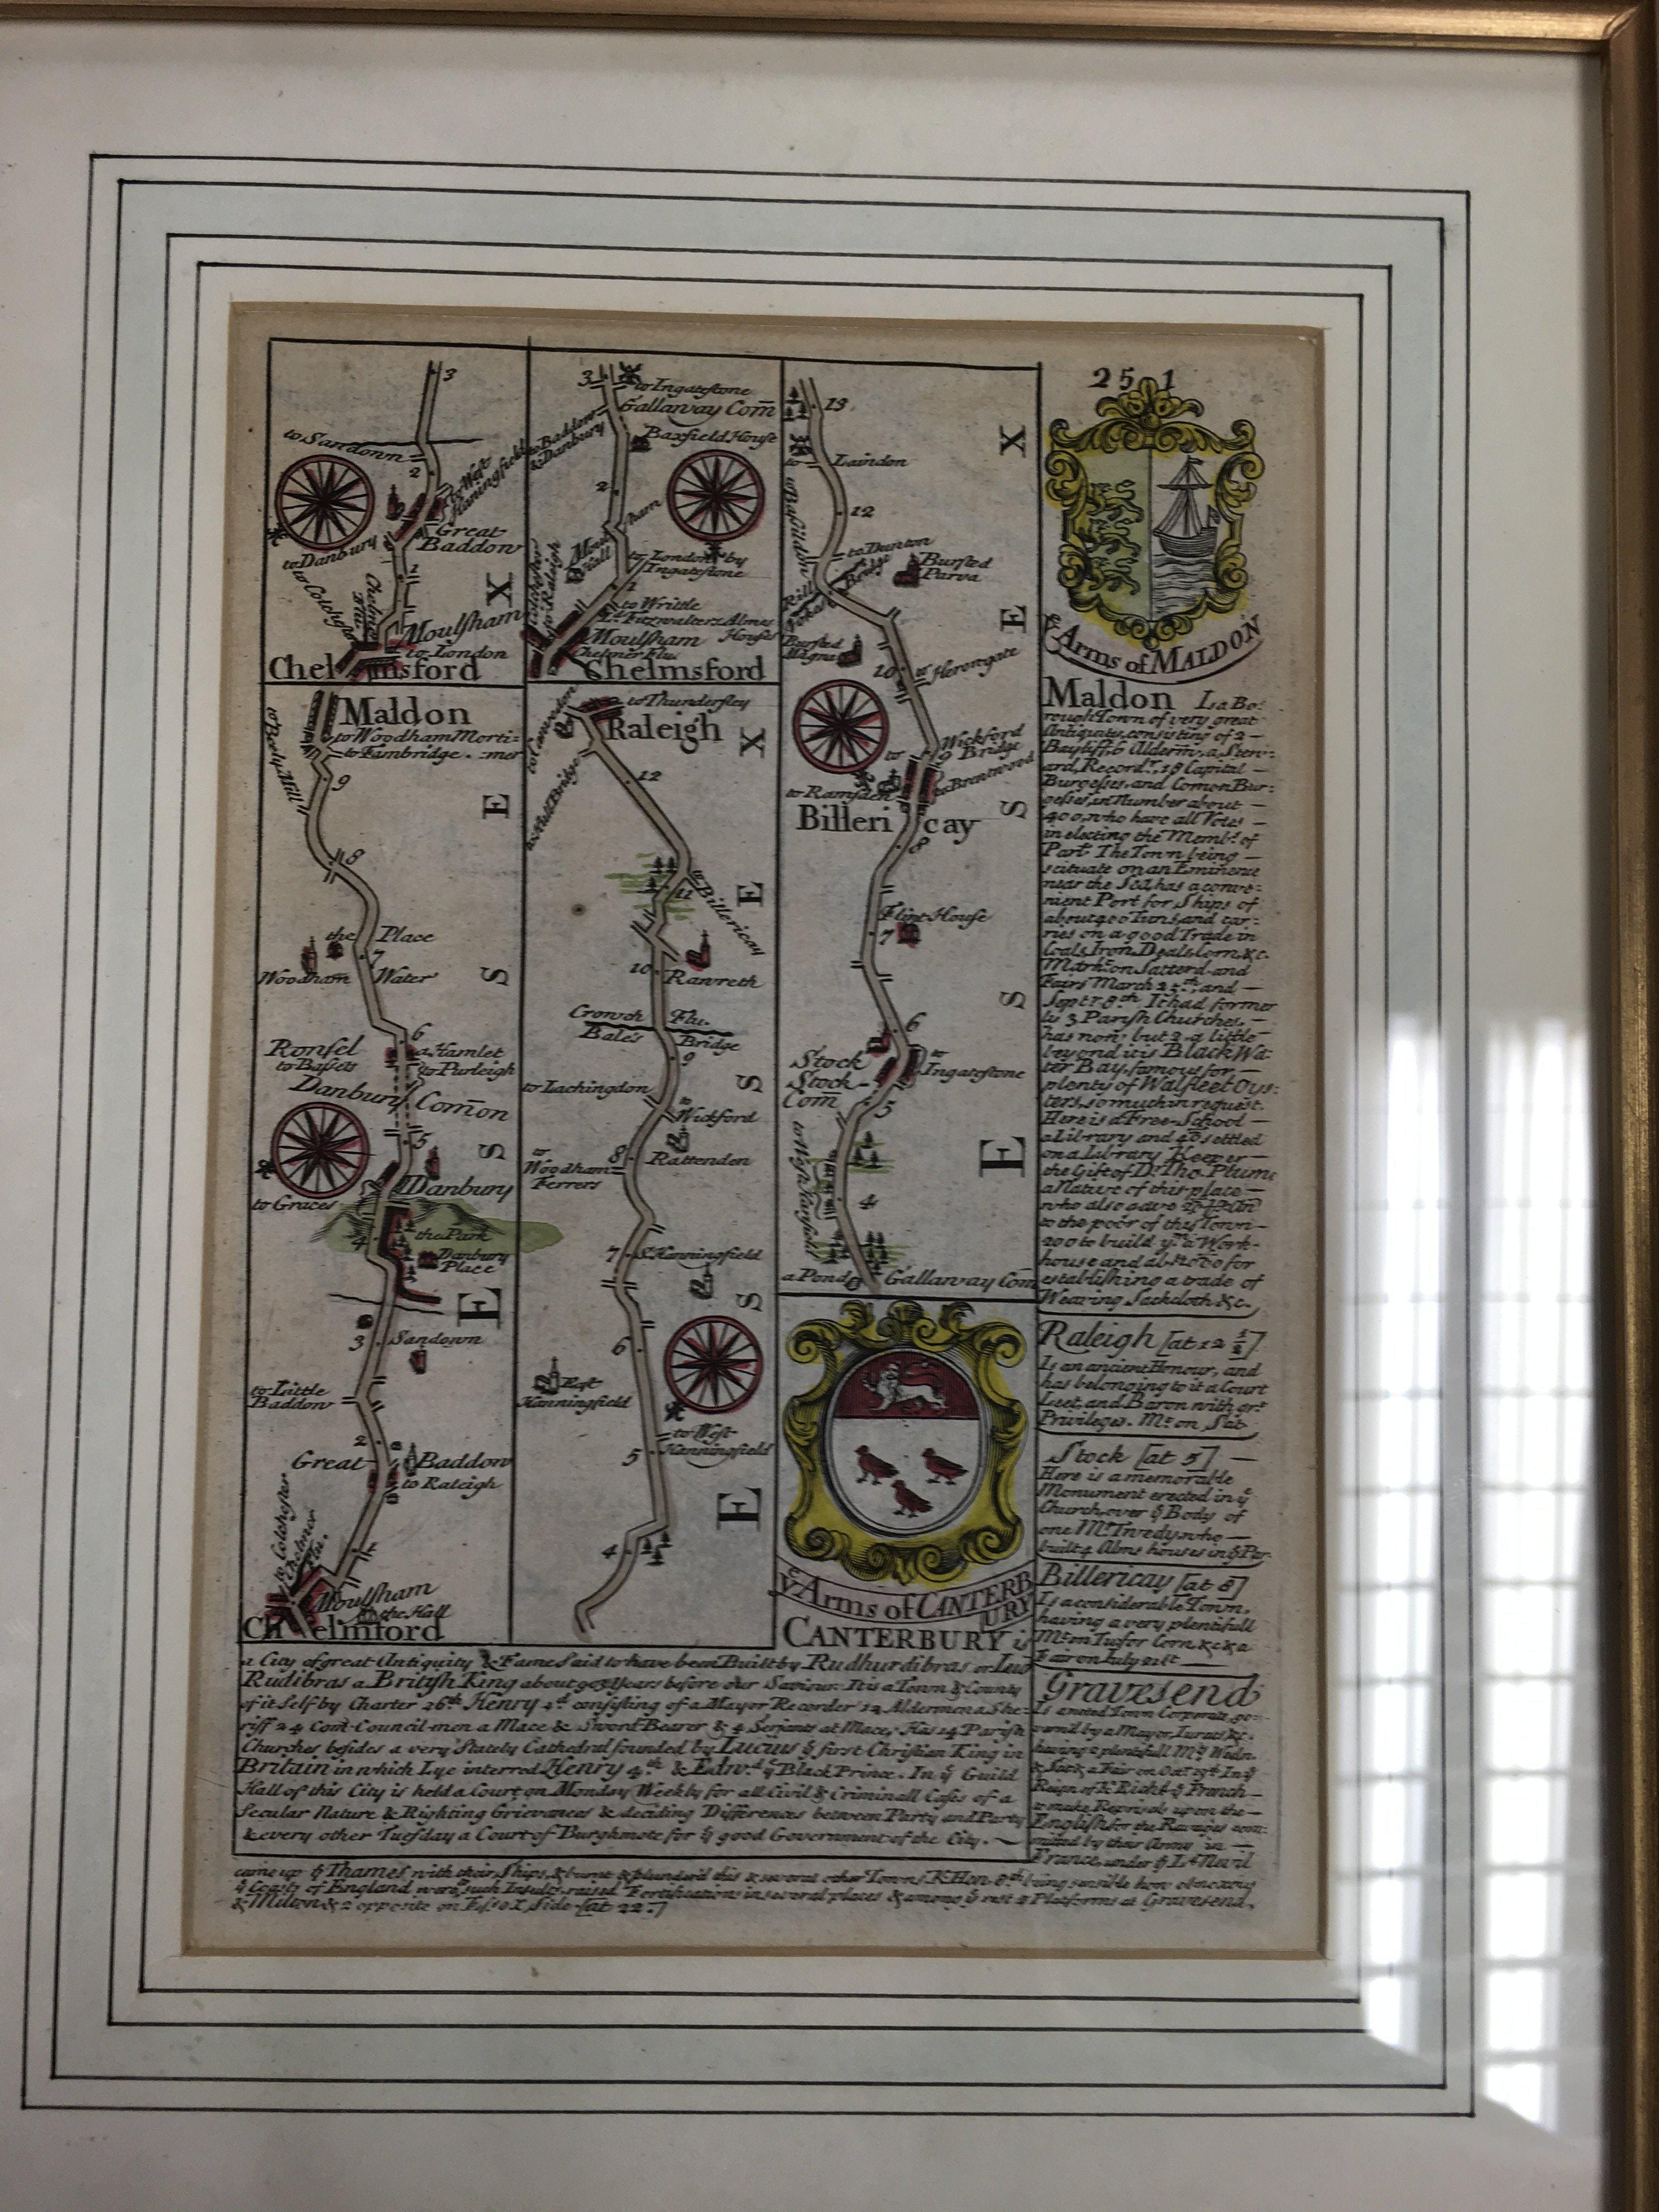 251
3
to Sandonn
2
to West
Haningfield
Great
Baddow
to Danbury
to Colchester
1
X
Moulsham
to London
Chelmsford
Maldon
to Woodham Morti-
to Fambridge. -mer
to Beely Mill
9
E
8
the Place
7
Woodham Water
S
6
Ronsel
a Hamlet
to Bassets
to Purleigh
Danbury Com̄on
5
S
Danbury
to Graces
4
the Park
Danbury
Place
E
3
Sandown
to Little
Baddow
2
Great Baddow
to Raleigh
to Colchester
Chelmer
Flu.
1
Moulsham
the Hall
Chelmford
3
to Ingatestone
Gallaway Com̄
to Baddow
& Danbury
Baxfield House
2
Moulsham
Hall
to London by
Ingatestone
1
to Writtle
Ld. Fitzwalters Almes
Houses
Moulsham
Chelmer Flu.
Chelmsford
to Thundersley
Raleigh
X
to Hull Bridge
12
E
11
to Billericay
10
Ranreth
Crouch Flu.
Bale's Bridge
9
to Lachingdon
S
to
Wickford
8
Rattenden
to
Woodham
Ferrers
7
S. Hanningfield
S
6
East
Hanningfield
to West
Hanningfield
5
E
4
13
X
to Laindon
to Basildon
12
to Dunton
Bursted
Parva
E
Bursted
Magna
10
to Herongate
Wickford
Bridge
9
to
to Brentwood
to Ramsden
S
Billericay
8
Flint House
7
S
6
Stock
to
Ingatestone
Stock
Com̄
5
E
4
a Pond
Gallaway Com̄
ye Arms of CANTERBURY
ye Arms of MALDON
Maldon I a Bo:
rough Town of very great
Antiquity, consisting of 2
Bayliffs 6 Alderm: a Stew:
ard, Recordr. 18 Capital
Burgesses, and Comon Bur:
gesses, in Number about
400, who have all Votes
in electing the Membs. of
Part. The Town being
scituate on an Eminence
near the Sea, has a conve:
nient Port for Ships of
about 400 Tuns, and car:
ries on a good Trade in
Coals, Iron, Deals, Corn, &c.
Markt. on Satterd. and
Fairs March 25th. and
Septr. 8th. It had former
ly 3 Parish Churches,
has now but 2, a little
beyond it is Black Wa:
ter Bay, famous for
plenty of Walfleet Oys:
ters, so much in request.
Here is a Free-School
a Library and 40£ settled
on a Library Keeper
the Gift of Dr. Tho. Plume
a Native of this place
who also gave
to the poor of this Town
200 to build ym. a Work-
house and abt. for
establishing a trade of
Weaving Sackcloth &c.
Raleigh [at 12 1/2]
Is an ancient Honour, and
has belonging to it a Court
Leet, and Baron with grt.
Privileges. Mt. on Sat.
Stock [at 5]
Here is a memorable
Monument erected in ye
Church, over ye Body of
one Mr. Tweedy, who
built 4 Alms houses in ye Par.
Billericay [at 8]
Is a considerable Town,
having a very plentifull
Mt. on Tu. for Corn, &c. & a
Fair on July 21st
CANTERBURY is
a City of great Antiquity & Fame Said to have been Built by Rudhurdibras or Lud
Rudibras a British King about 903 Years before our Saviour. It is a Town & County
of it Self by Charter 26th. Henry consisting of a Mayor Recorder 12 Aldermen a She-
riff 24 Com̄-Council-men a Mace & Sword Bearer & 4 Serjants at Mace, Has 14 Parish
Churches besides a very Stately Cathedral founded by Lucius ye first Christian King in
Britain in which Lye interred Henry 4th. & Edwd. ye Black Prince. In ye Guild
Hall of this City is held a Court on Monday Weekly for all Civil & Criminall Cases of a
Secular Nature & Righting Grievances & deciding Differences between Party and Party
& every other Tuesday a Court of Burghmote for ye good Government of the City.
Gravesend
Is united Town Corporate, go-
vern'd by a Mayor, Jurats, &c.
having a plentifull Mt. Wedn.
& Sat. & a Fair on Octr. In ye
Reign of K. Richd. ye French
to make Reprisals upon the
English for the Ravages com-
mitted by their Army in
France, under ye Ld. Nevil
came up ye Thames with their Ships, & burnt & plunder'd this & several other Towns K. Hen. 8th. being sensible how obnoxious
ye Coasts of England were to such Insults, raised Fortifications in several places & among ye rest 2 Platforms at Gravesend,
& Milton & 2 opposite on Essex Side [at 22.]